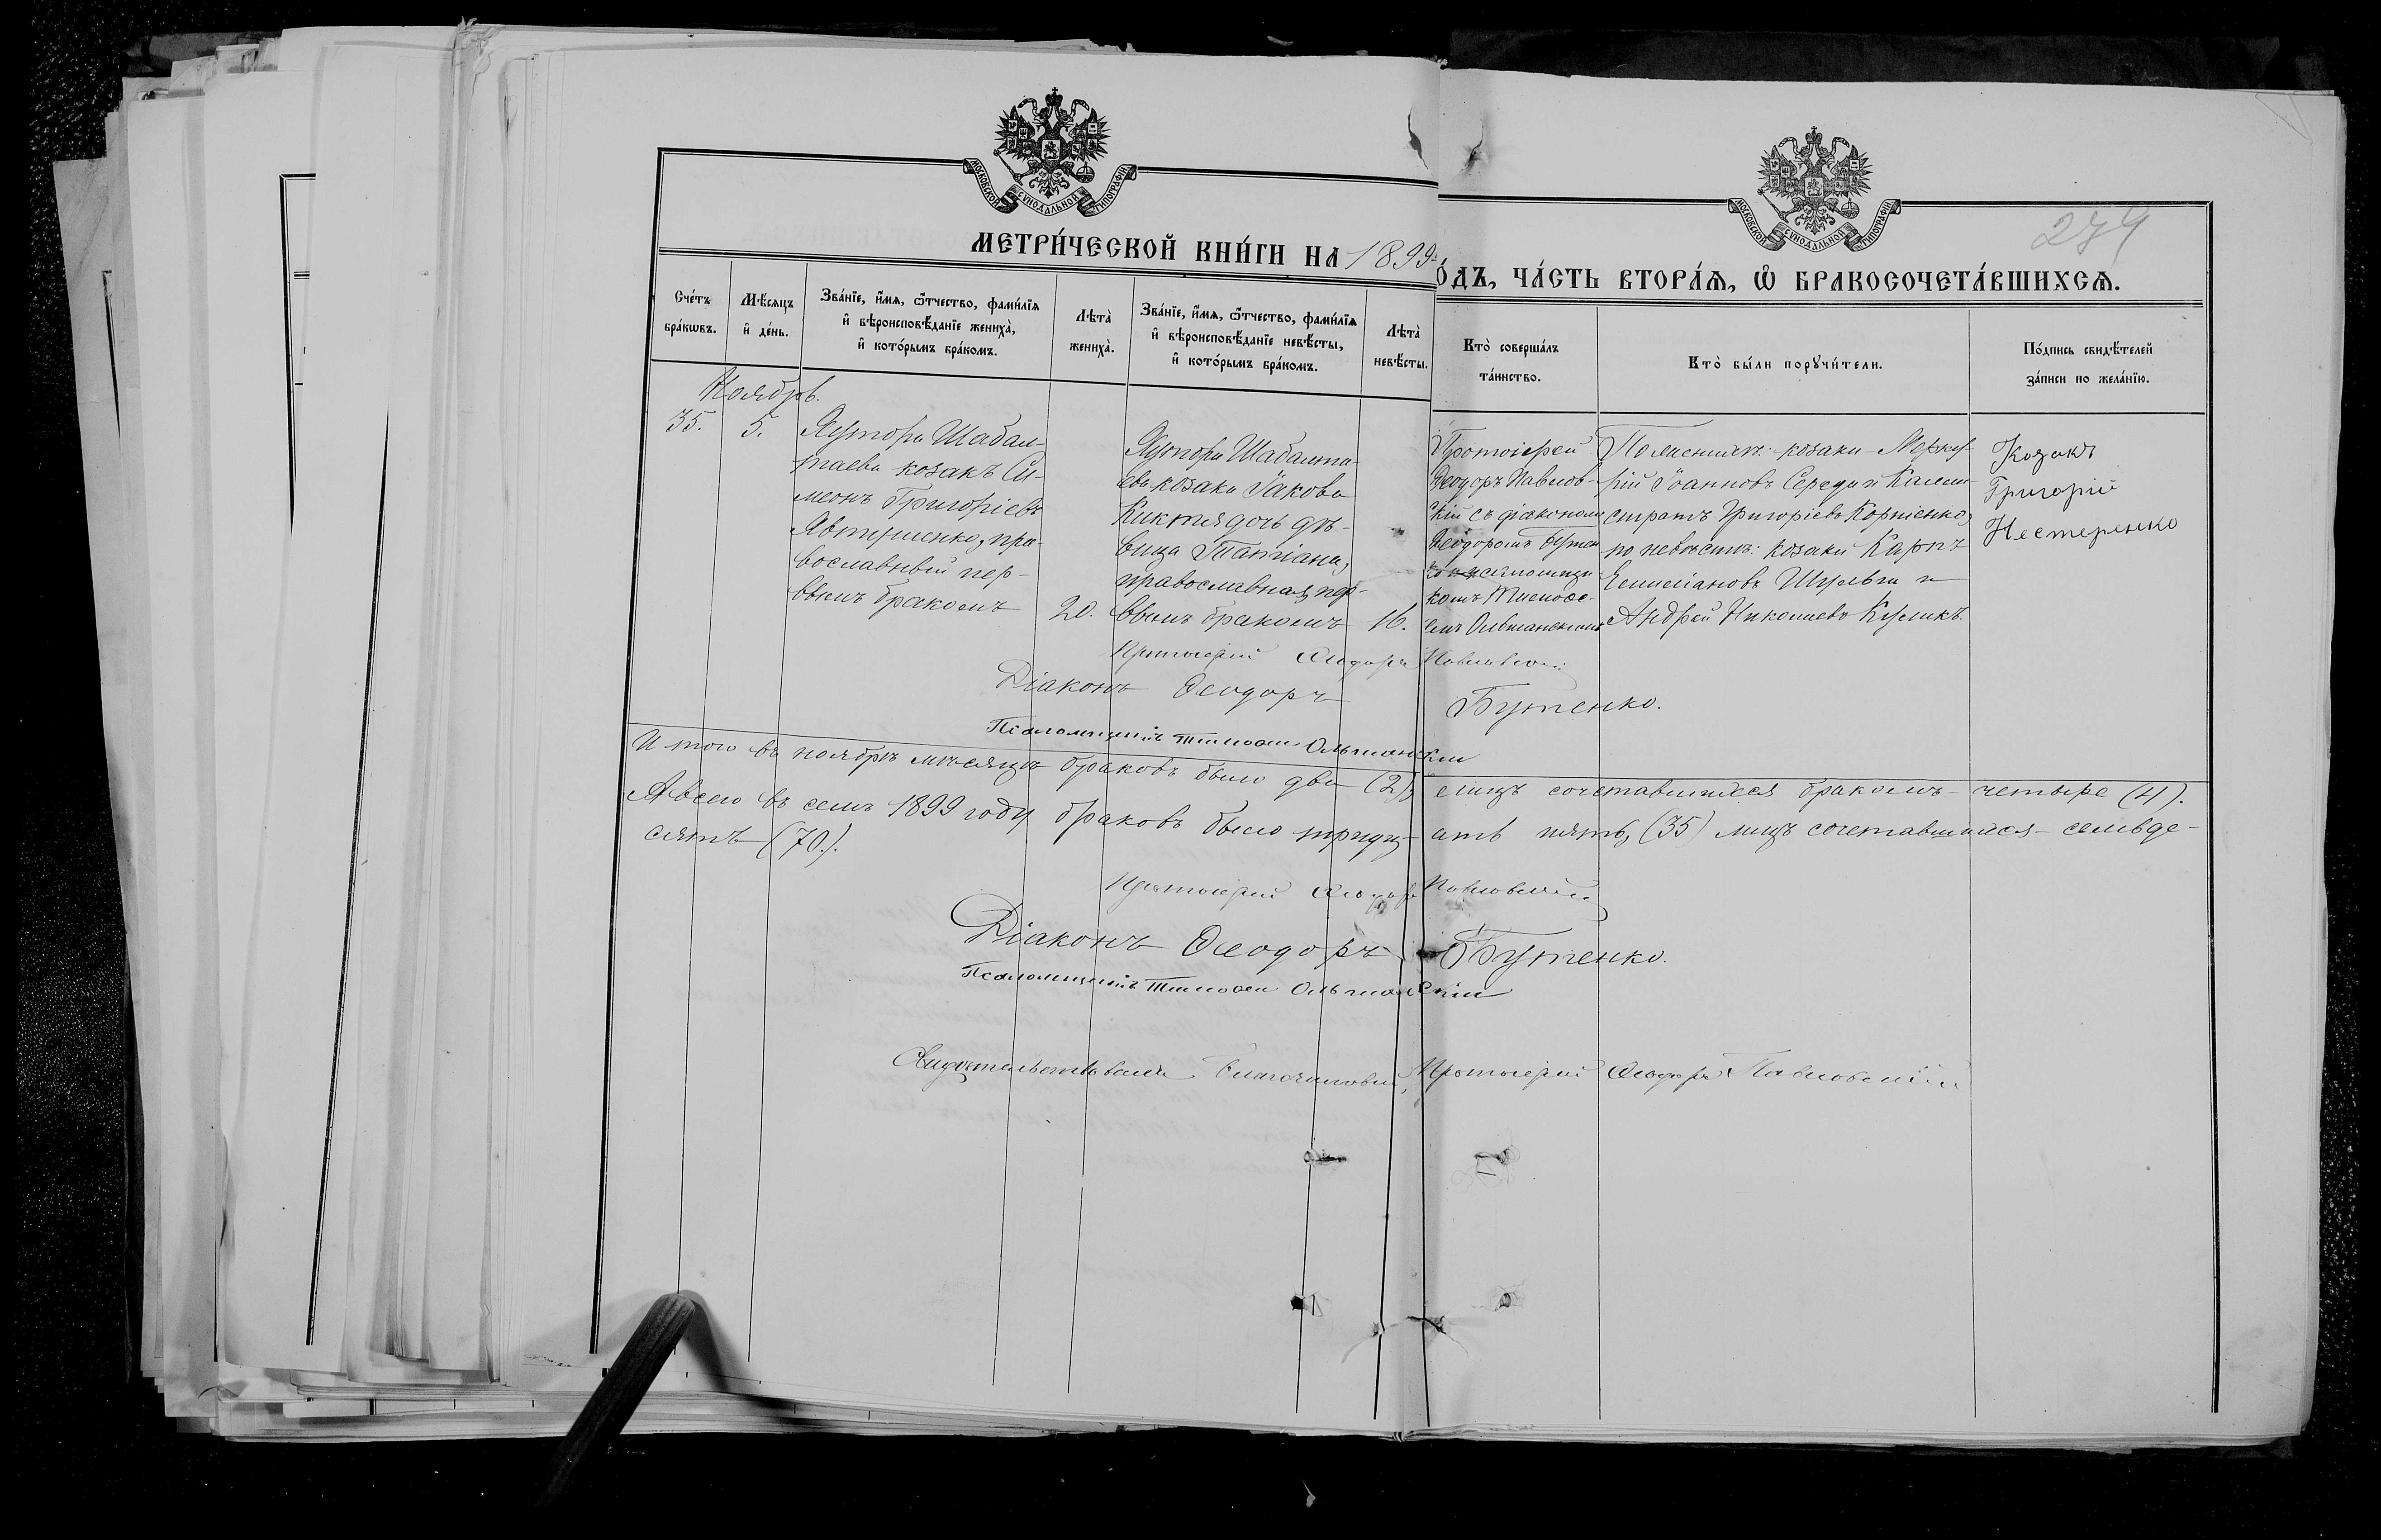 МОСКОВСКОЙ СѴНОДАЛЬНОЙ ТИПОГРАФІИ
МОСКОВСКОЙ СѴНОДАЛЬНОЙ ТИПОГРАФІИ
279
МЕТРИ́ЧЕСКОЙ КНИ́ГИ НА 1899 ГО́ДЪ, ЧА́СТЬ ВТОРА́Ѧ, Ѽ БРАКОСОЧЕТА́ВШИХСѦ.
Сче́тъ бра́кѡвъ.
Мѣ́сяцъ и҆ де́нь.
Зва́нїе, и҆́мѧ, ѻ҆́тчество, фами́лїѧ и҆ вѣроисповѣ́данїе жениха̀, и҆ кото́рымъ бра́комъ.
Лѣта̀ жениха̀.
Зва́нїе, и҆́мѧ, ѻ҆́тчество, фами́лїѧ и҆ вѣроисповѣ́данїе невѣ́сты, и҆ кото́рымъ бра́комъ.
Лѣта̀ невѣ́сты.
Кто̀ соверша́лъ та́инство.
Кто̀ бы́ли порꙋчи́тели.
По́дпись свидѣ́телей за́писи по жела́нїю.
Ноябрь.
35.
5.
Хутора Шабал-
таева козакъ Си-
меонъ Григоріевъ
Явтушенко, пра-
вославный пер-
вымъ бракомъ
20.
Хутора Шабалта-
ева козака Іакова
Киктя дочь дѣ-
вица Татіана,
православная, пер-
вымъ бракомъ
16.
Протоіерей
Ѳеодоръ Павлов-
скій съ діакономъ
Ѳеодоромъ Бутен
ко и псаломщи-
комъ Тимоѳе-
емъ Ольшанскимъ
По женихѣ: козаки Мерку-
рій Іоанновъ Середа и Калли-
стратъ Григоріевъ Корніенко,
по невѣстѣ: козаки Карпъ
Емиліановъ Шульга и
Андрей Николаевъ Куликъ.
Козакъ
Григорій
Нестеренко
Протоіерей Ѳеодоръ Павловскій
Діаконъ Ѳеодоръ Бутенко.
Псаломщикъ Тимоѳей Ольшанскій
Итого въ ноябрѣ мѣсяцѣ браковъ было два (2), лицъ сочетавшихся бракомъ – четыре (4).
А всего въ семъ 1899 году браковъ было тридц-ать пять, (35) лицъ сочетавшихся – семьде-
сятъ (70).
Протоіерей Ѳеодоръ Павловскій
Діаконъ Ѳеодоръ Бутенко.
Псаломщикъ Тимоѳей Ольшанскій
Свидѣтельствовалъ Благочинный, Протоіерей Ѳеодоръ Павловскій